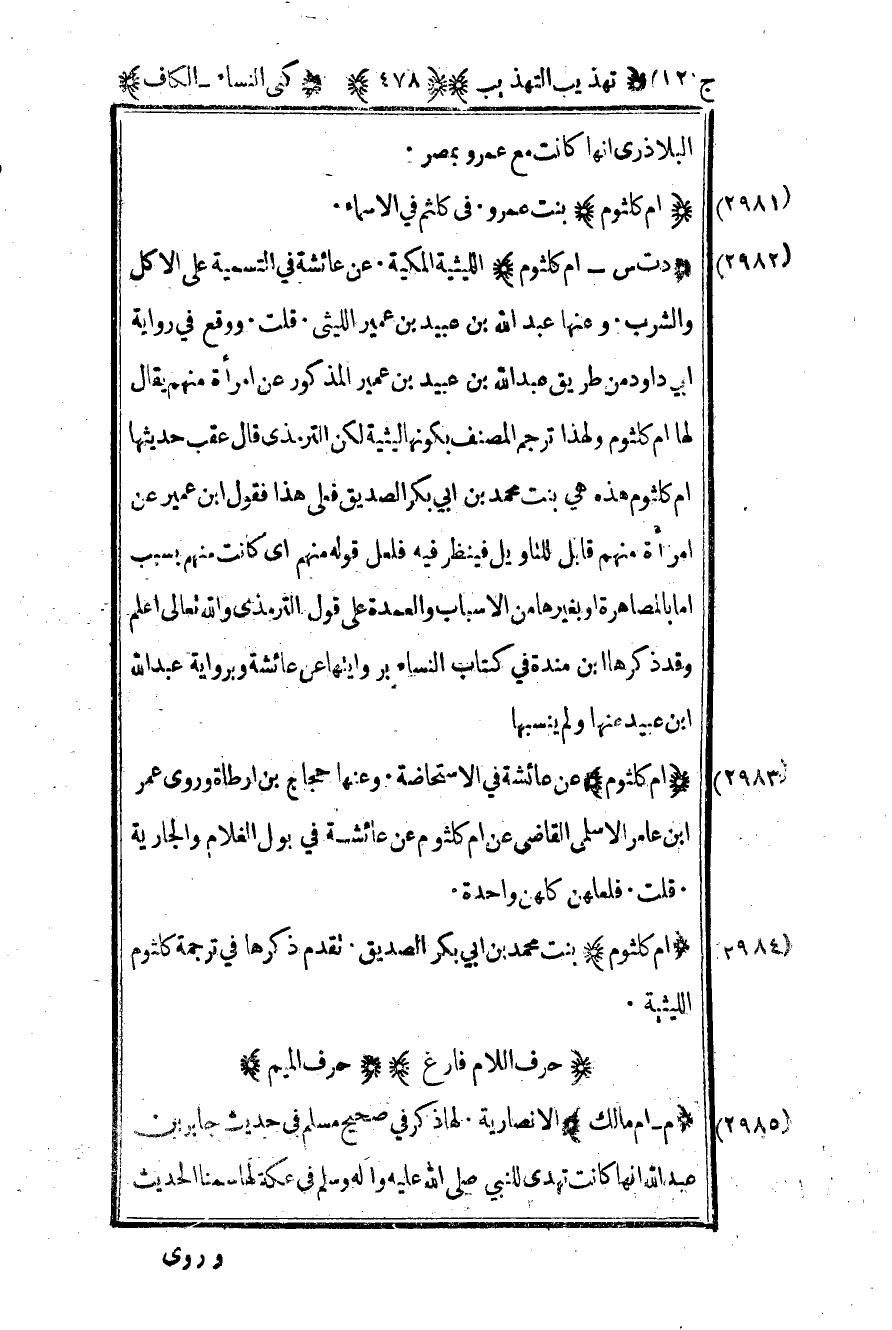 ج (١٢) ﴿ تهذيب التهذيب ﴾ ﴿ ٤٧٨ ﴾ ﴿ كنى النساء ـ الكاف ﴾
البلاذرى انها كانت مع عمرو بمصر ٠
(٢٩٨١) ﴿ ام كلثوم ﴾ بنت عمرو ٠ فى كلثم في الاسماء ٠
(٢٩٨٢) ﴿ د ت س ـ ام كلثوم ﴾ الليثية المكية ٠ عن عائشة في التسمية على الاكل
والشرب ٠ وعنها عبد الله بن عبيد بن عمير الليثى ٠ قلت ٠ ووقع في رواية
ابي داود من طريق عبدالله بن عبيد بن عمير المذكور عن امرأة منهم يقال
لها ام كلثوم ولهذا ترجم المصنف بكونها ليثية لكن الترمذى قال عقب حديثها
ام كلثوم هذه هي بنت محمد بن ابي بكر الصديق فعلى هذا فقول ابن عمير عن
امرأة منهم قابل للتاويل فينظر فيه فلعل قوله منهم اى كانت منهم بسبب
اما بالمصاهرة او بغيرها من الاسباب والعمدة على قول الترمذى والله تعالى اعلم
وقد ذكرها ابن مندة في كتاب النساء بروايتها عن عائشة وبرواية عبدالله
ابن عبيد عنها ولم ينسبها
(٢٩٨٣) ﴿ ام كلثوم ﴾ عن عائشة في الاستحاضة ٠ وعنها حجاج بن ارطاة وروى عمر
ابن عامر الاسلمى القاضى عن ام كلثوم عن عائشة في بول الغلام والجارية
٠ قلت ٠ فلعلهن كلهن واحدة ٠
(٢٩٨٤) ﴿ ام كلثوم ﴾ بنت محمد بن ابي بكر الصديق ٠ تقدم ذكرها في ترجمة كلثوم
الليثية ٠
﴿ حرف اللام فارغ ﴾ ﴿ حرف الميم ﴾
(٢٩٨٥) ﴿ م ـ ام مالك ﴾ الانصارية ٠ لها ذكر في صحيح مسلم فى حديث جابر بن
عبدالله انها كانت تهدى للنبي صلى الله عليه وآله وسلم فى عكة لها سمنا الحديث
وروى